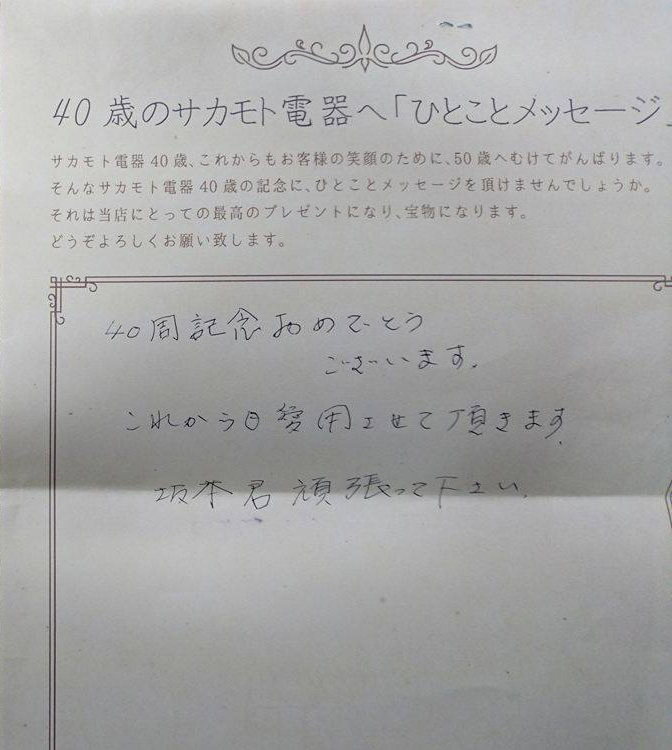 40歳のサカモト電器へ「ひとことメッセージ」
サカモト電器40歳、これからもお客様の笑顔のために、50歳へむけてがんばります。
そんなサカモト電器40歳の記念に、ひとことメッセージを頂けませんでしょうか。
それは当店にとっての最高のプレゼントになり、宝物になります。
どうぞよろしくお願い致します。
40周記念おめでとう
ございます。
これから日愛用させて頂きます
坂本君頑張って下さい。